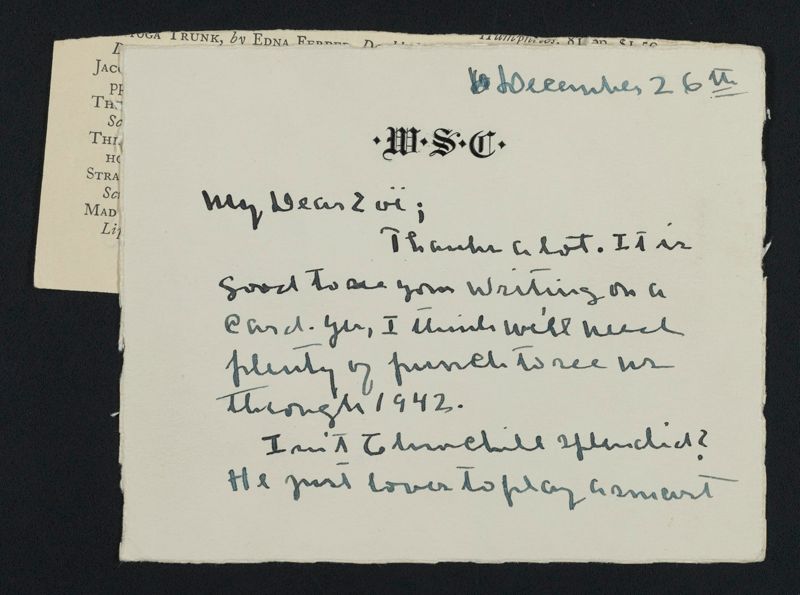 TOGA TRUNK, by EDNA FERBER. Do
Humphries. $1.50
D
JAC
PE
TH
Sc
THE
HO
STRA
Sc
MAD
Lip
December 26th
·W·S·C·
My Dear Zoë;
Thanks a lot. It is
good to see your writing on a
card. Yes, I think we'll need
plenty of punch to see us
through 1942.
Isn't Churchill splendid?
He just loves to play a smart